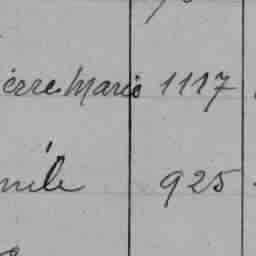 ierre Marie 1117
mile 925